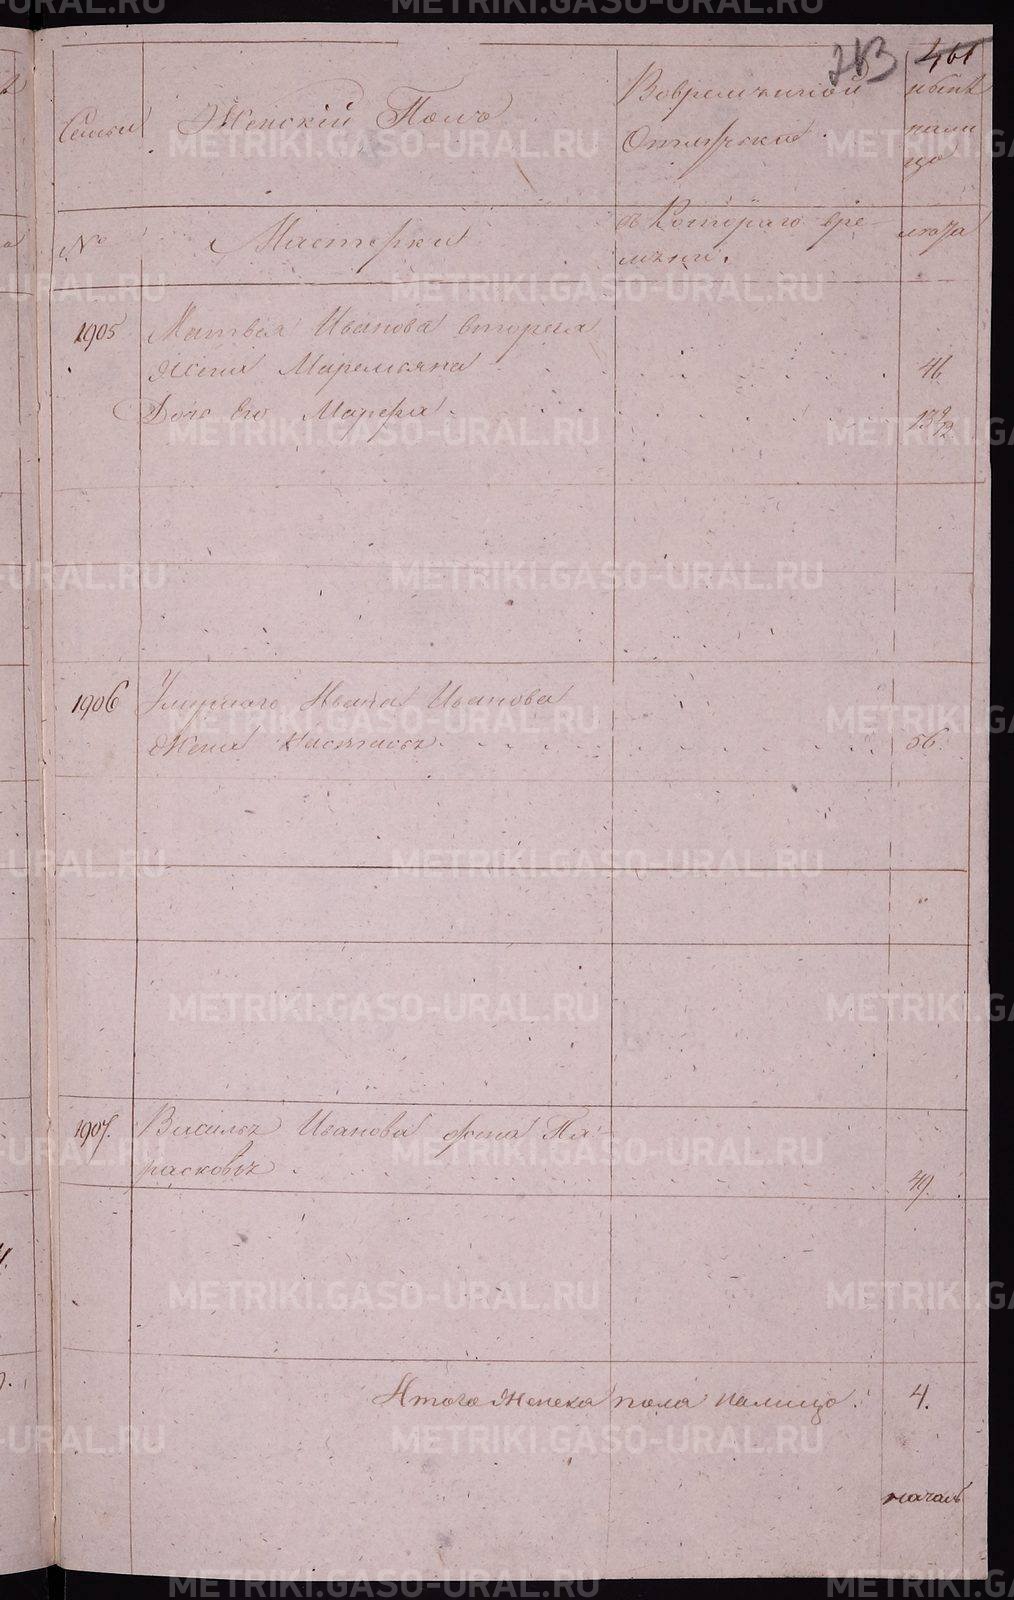 263
461
Семьи
Женскій Полъ
Вовременной
Отлучке
ныне
нали
цо
№
Мастерки
съ Котораго вре-
мени.
лета
1905
Матвея Иванова вторая
жена Маремьяна
46
Дочь Его Марфа
13 9/12
1906
Умершаго Ивана Иванова
жена Настасья
56.
1907.
Василья Иванова жена Па-
расковья
49.
Итого женска пола налицо.
4.
METRIKI.GASO-URAL.RU